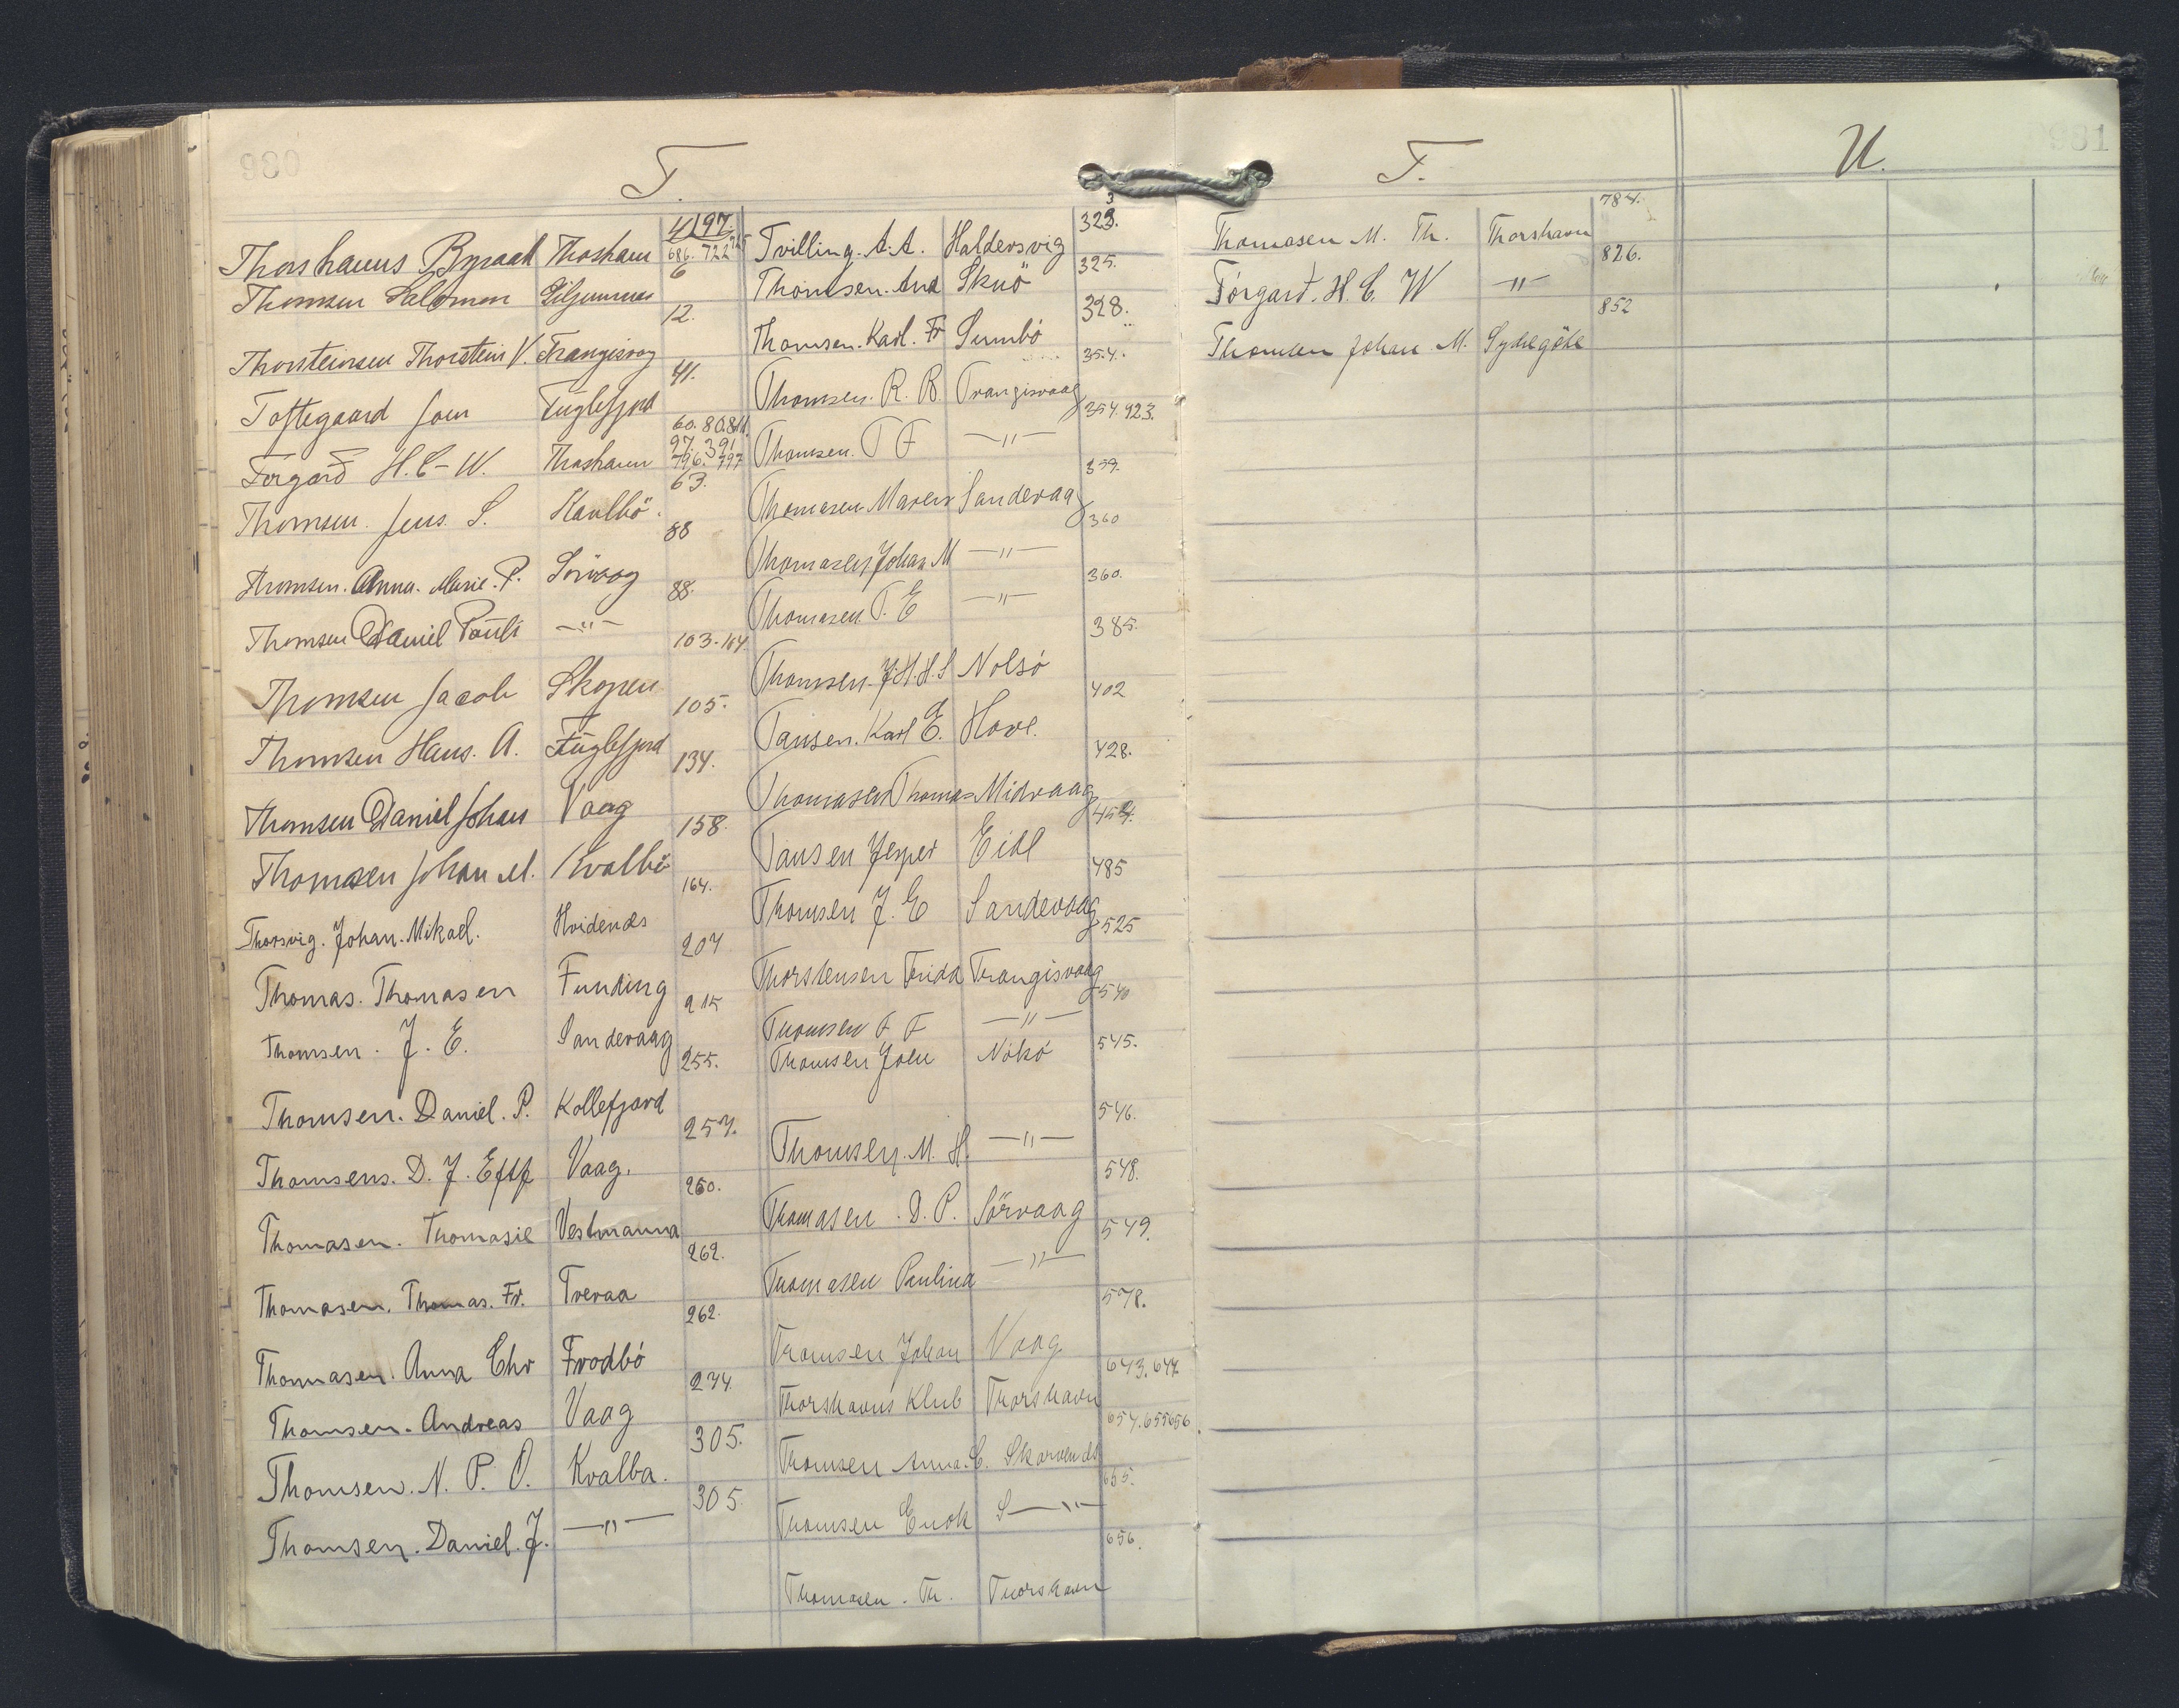 930
T.
4 197
Thorshavns Byraad Thorshavn 686. 722
Thomsen Salomon 6
Thorsteinsen Thorstein V. Trangisvog 12.
Toftegaard Joen Fuglefjord 41.
60. 80.
97. 391
Torgarð H. C-W. Thorshavn 796. 797
Thomsen. Jens. S. 63.
Thomsen. Anna. Marie. P. Sörvaag 88
Thomsen Daniel Pauli —"— 88.
Thomsen Jacob Skopen 103-104.
Thomsen Hans. A. Fuglefjord 105.
Thomsen Daniel Johan Vaag 134.
Thomasen Johan M. Kvalbö 158.
Thorsvig. Johan. Mikael. Hvidenæs 164.
Thomas. Thomasen Funding 207
Thomsen. J. E. Sandevaag 215
Thomsen. Daniel. P. Kollefjord 255.
Thomsens. D. J. Eftf Vaag. 257.
Thomasen. Thomasie Vestmanna 260.
Thomasen. Thomas. Fr. Tveraa 262.
Thomasen. Anna Chr Frodbö 262.
Thomsen. Andreas Vaag 274
Thomsen. N. P. O. Kvalba. 305.
Thomsen. Daniel. J. —"— 305.
Tvilling. A. A. Haldersvig 323.
Thomsen. And Skuö 325.
Thomsen. Karl. Fr Sumbö 328.
Thomsen. R. B. Trangisvaag 354.
Thomsen. T F —"— 354. 923.
Thomasen Maren Sandevaag 359.
Thomasen Johan M —"— 360
Thomasen T. E —"— 360.
Thomsen. J. H. H. S Nolsö 385.
Tausen. Karl E. Hove. 402
Thomasen Thomas Midvaag 428.
Tausen Jesper Eide 454.
Thomsen J. E Sandevaag 485
Thorstensen Frida Trangisvaag 525
Thomsen F F —"— 540
Thomsen Joen 545.
Thomsen. M. H. —"— 546.
Thomasen. D. P. Sörvaag 548.
Thomasen Paulina —"— 549.
Thomsen Johan Vaag 578.
Thorshavns Klub Thorshavn 643. 647
Thomsen Anna. C. Skarvenæs 654. 655 656
Thomsen Enok S—"— 655.
Thomasen. Th. Thorshavn 656.
T.
Thomasen M. Th. Thorshavn 784.
Tórgarð. H. C. W —"— 826.
Thomsen Johan M. Sydregöte 852
U.
931